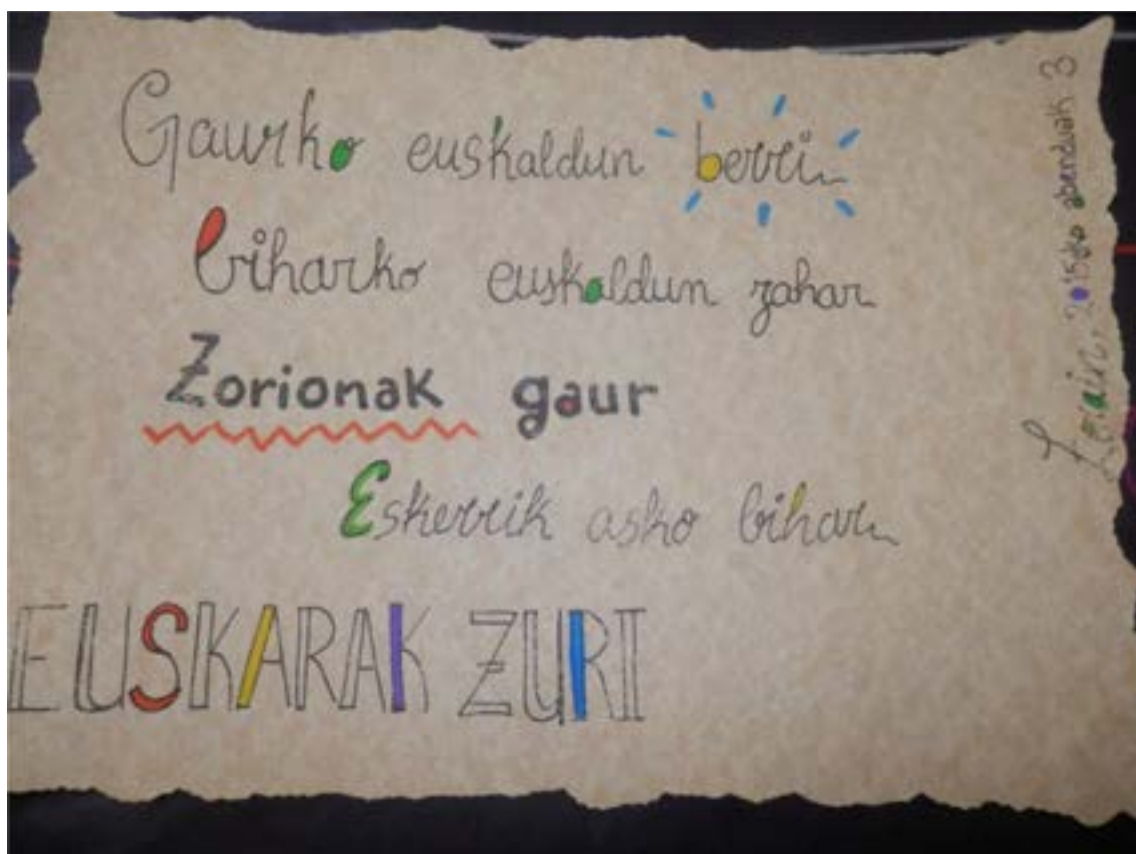 Gaurko euskaldun berri
biharko euskaldun zahar
Zorionak gaur
Eskerrik asko bihar
EUSKARAK ZURI
2015ko abenduak 3